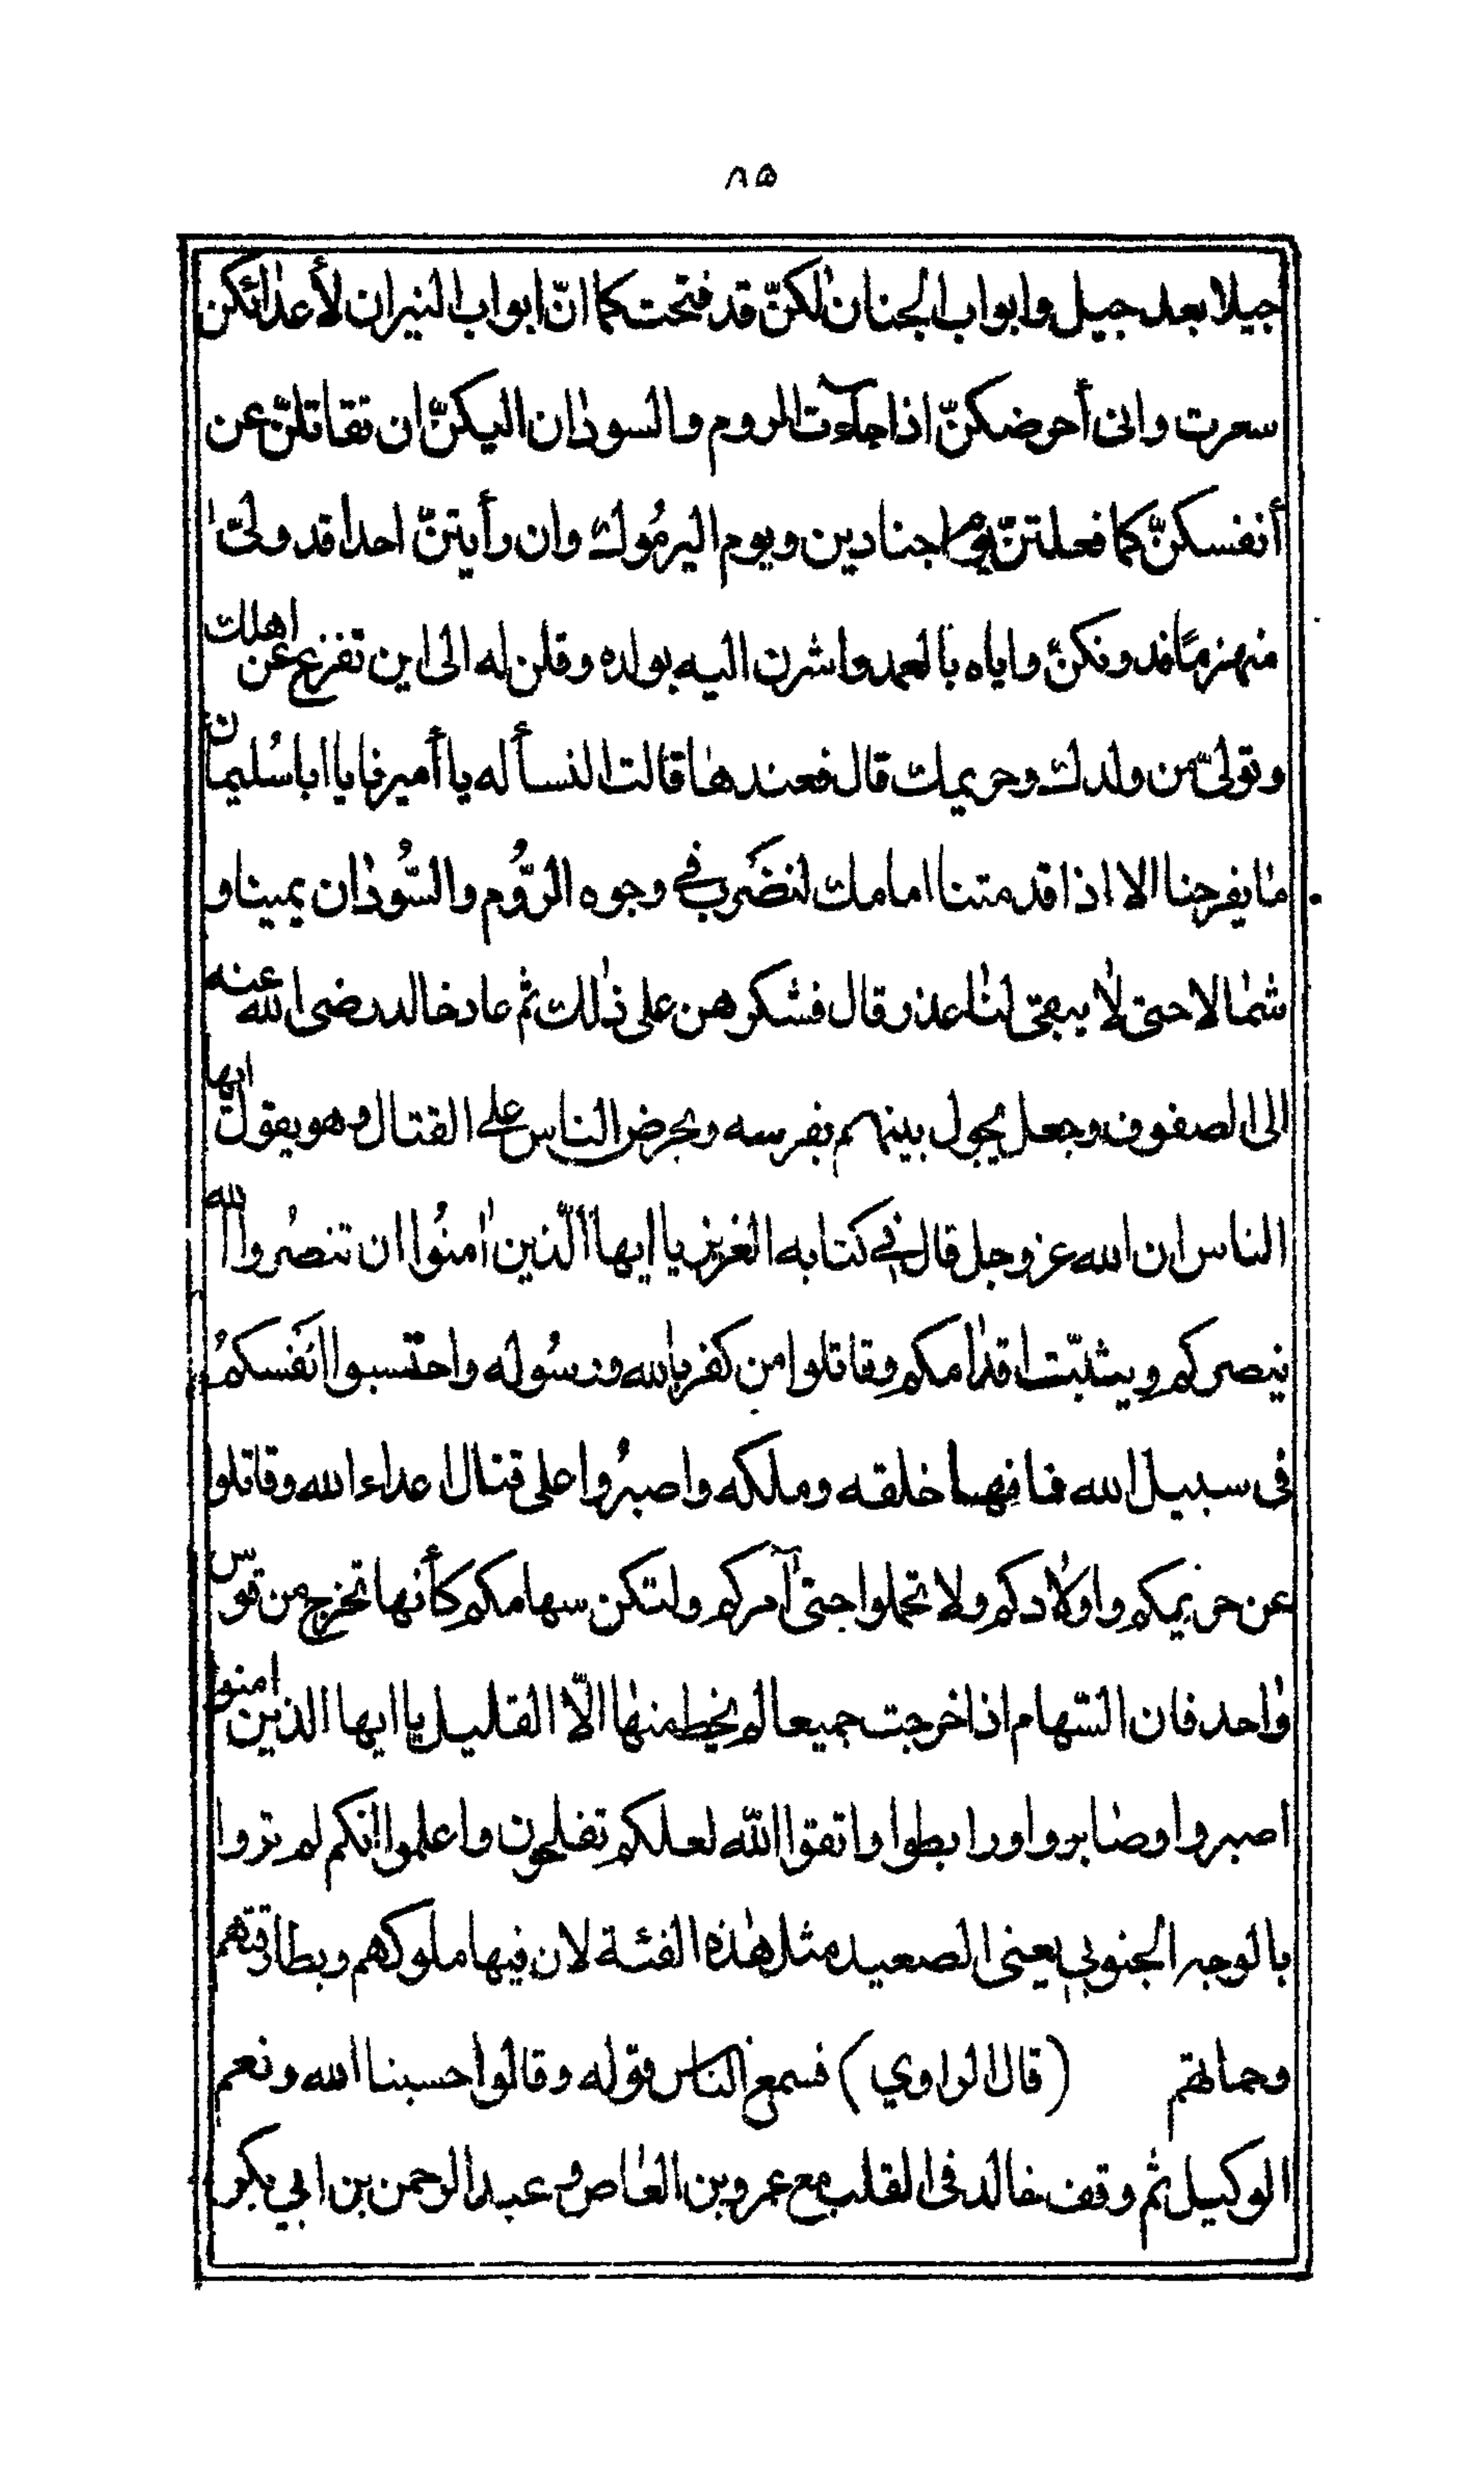 ٨٥
جيلا بعد جيل وابواب الجنان لكنّ قد فتحت كما انّ ابواب النيران لأعدائكن
سعرت وانى أحرضكنّ اذا جاءت الروم والسودان اليكنّ ان تقاتلنّ عن
أنفسكنّ كما فعلتنّ يوم اجنادين ويوم اليرمُوك وان رأيتنّ احدا قد ولىّ
منهزمًا فدونكنّ واياه بالعمد واشرن اليه بولده وقلن له الى اين تفزع عن اهلك
وتولىّ من ولدك وحريمك قال فعندها قالت النسأ له يا أميرنا يا ابا سُليمان
ما يفرحنا الا اذا قدمتنا امامك لنضَرب في وجوه الرّوُم والسّوُدان يمينا و
شمالا حتى لا يبقى لنا عذر قال فشكرهن على ذلك ثم عاد خالد رضى الله عنه
الى الصفوف وجعل يجول بينهم بفرسه ويحرض الناس على القتال وهو يقول ايها
الناس ان الله عز وجل قال في كتابه العزيز يا ايها الّذين اٰمنوُا ان تنصُروا الله
ينصركم ويثبّت اقدامكم وقاتلوا من كفر بالله ورسُوله واحتسبوا انَفسكمُ
فى سبيل الله فانها خلقه وملكه واصبرُوا على قتال اعداء الله وقاتلوا
عن حريمكم واولادكم ولا تحملوا حتى آمركم ولتكن سهامكم كأنها تخرج من قوس
واحد فان السّهام اذا خرجت جميعا لم يخط منها الّا القليل يا ايها الذين امنوا
اصبروا وصابروا ورابطوا واتقوا اللّه لعلكم تفلحون واعلموا انكم لم تروا
بالوجه الجنوبي يعنى الصعيد مثل هذه الفئة لان فيها ملوكهم وبطارقتهم
وحماتهم (قال الراوي) فسمع الناس قوله وقالوا حسبنا الله ونعم
الوكيل ثم وقف خالد فى القلب مع عمرو بن العاص وعبد الرحمن بن ابي بكر